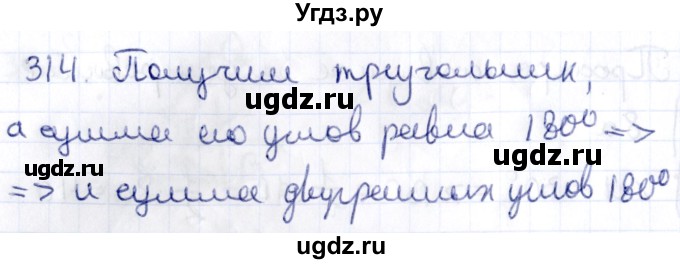 Угдз.ру
314. Получим треугольник,
ugdz.ru
ugdz.ru
а сумма его углов равна 180⁰ =>
ugdz.ru
=> и сумма двугранных углов 180⁰
ugdz.ru
ugdz.ru